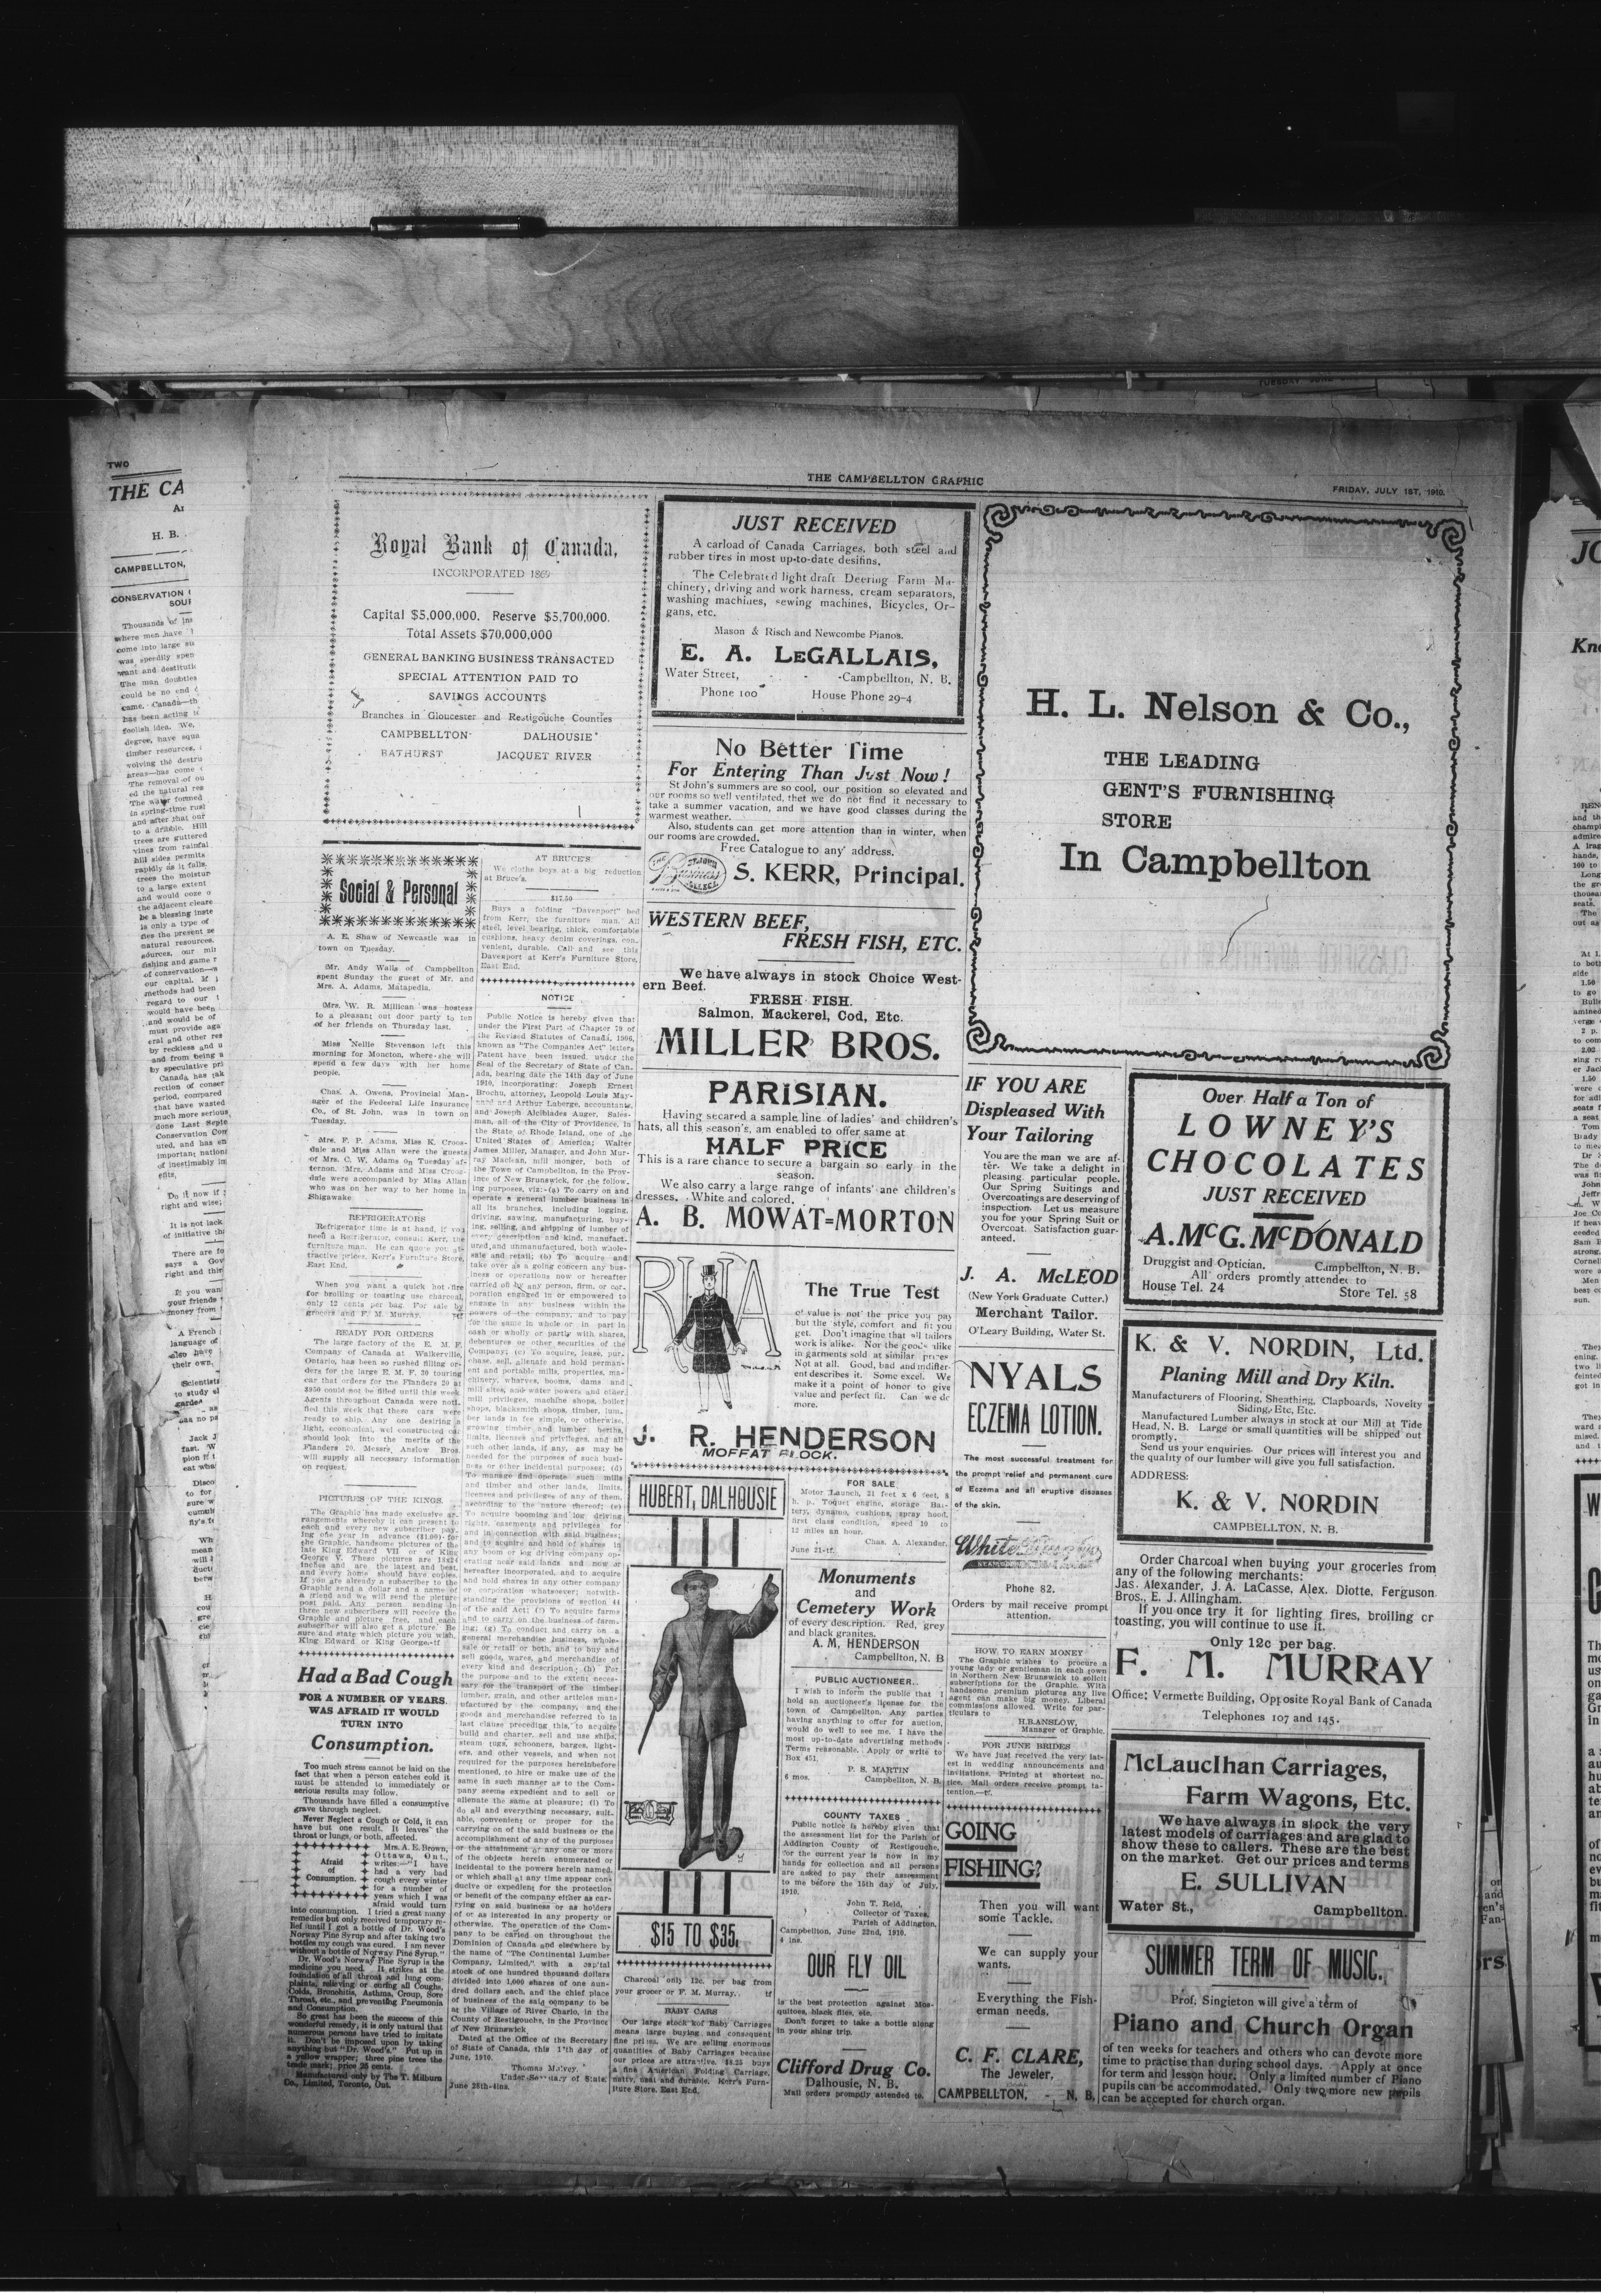 TWO
THE CA
H. B.
CAMPBELLTON,
THE CAMPBELLTON GRAPHIC
FRIDAY, JULY 1ST, 1910.
Royal Bank of Canada,
INCORPORATED 1869
Capital $5,000,000. Reserve $5,700,000.
Total Assets $70,000,000
GENERAL BANKING BUSINESS TRANSACTED
SPECIAL ATTENTION PAID TO
SAVINGS ACCOUNTS
Branches in Gloucester and Restigouche Counties
CAMPBELLTON DALHOUSIE
BATHURST JACQUET RIVER
Social & Personal
A. E. Shaw of Newcastle was in
town on Tuesday.
Mr. Andy Walls of Campbellton
spent Sunday the guest of Mr. and
Mrs. A. Adams, Matapedia.
Mrs. W. R. Millican was hostess
to a pleasant out door party to ten
of her friends on Thursday last.
Miss Nellie Stevenson left this
morning for Moncton, where she will
spend a few days with her home
people.
Chas. A. Owens, Provincial Man-
ager of the Fedeeral Life Insurance
Co., of St. John, was in town on
Tuesday.
Mrs. F. P. Adams, Miss K. Croos-
dale and Miss Allan were the guests
of Mrs. C. W. Adams on Tuesday af-
ternon. Mrs. Adams and Miss Croos-
dale were accompanied by Miss Allan
who was on her way to her home in
Shigawake.
REFRIGERATORS
Refrigerator time is at hand, if you
need a Refrigerator, consult Kerr, the
furniture man. He can quote you at-
tractive prices. Kerr's Furniture Store,
East End.
When you want a quick hot fire
for broiling or toasting use charcoal,
only 12 cents per bag. For sale by
grocers and F. M. Murray.
READY FOR ORDERS
The large factory of the E. M. F.
Company of Canada at Walkerville,
Ontario, has been so rushed filling or-
ders for the large E. M. F. 30 touring
car that orders for the Flanders 20 at
$950 could not be filled until this week.
Agents throughout Canada were noti-
fied this week that these cars were
ready to ship. Any one desiring a
light, economical, wel constructed car
should look into the merits of the
Flanders 20. Messrs. Anslow Bros.
will supply all necessary information
on request.
PICTURES OF THE KINGS.
The Graphic has made exclusive ar-
rangements whereby it can present to
each and every new subscriber pay-
ing one year in advance ($1.00) for
the Graphic, handsome pictures of the
late King Edward VII or of King
George V. These pictures are 18x24
inches and are the latest and best,
and every home should have copies.
If you are already a subscriber to the
Graphic send a dollar and a name of
a friend and we will send the picture
post paid. Any person sending in
three new subscribers will receive the
Graphic and picture free, and each
subscriber will also get a picture. Be
sure and state which picture you wish,
King Edward or King George.-tf
Had a Bad Cough
FOR A NUMBER OF YEARS.
WAS AFRAID IT WOULD
TURN INTO
Consumption.
Too much stress cannot be laid on the
fact that when a person catches cold it
must be attended to immediately or
serious results may follow.
Thousands have filled a consumptive
grave through neglect.
Never Neglect a Cough or Cold, it can
have but one result. It leaves the
throat or lungs, or both, affected.
Afraid
of
Consumption.
Mrs. A. E. Brown,
Ottawa, Ont.,
writes:—"I have
had a very bad
cough every winter
for a number of
years which I was
afraid would turn
into consumption. I tried a great many
remedies but only received temporary re-
lief until I got a bottle of Dr. Wood's
Norway Pine Syrup and after taking two
bottles my cough was cured. I am never
without a bottle of Norway Pine Syrup."
Dr. Wood's Norway Pine Syrup is the
medicine you need. It strikes at the
foundation of all throat and lung com-
plaints, relieving or curing all Coughs,
Colds, Bronchitis, Asthma, Croup, Sore
Throat, etc., and preventing Pneumonia
and Consumption.
So great has been the success of this
wonderful remedy, it is only natural that
numerous persons have tried to imitate
it. Don't be imposed upon by taking
anything but "Dr. Wood's." Put up in
a yellow wrapper; three pine trees the
trade mark; price 25 cents.
Manufactured only by The T. Milburn
Co., Limited, Toronto, Ont.
AT BRUCE'S
We clothe boys at a big reduction
at Bruce's.
$17.50
Buys a folding "Davenport" bed
from Kerr, the furniture man. All
steel, level bearing, thick, comfortable
cushions, heavy denim coverings, con-
venient, durable. Call and see this
Davenport at Kerr's Furniture Store,
East End.
NOTICE
Public Notice is hereby given that
under the First Part of Chaptor 79 of
the Revised Statutes of Canada, 1906,
known as "The Companies Act" letters
Patent have been issued under the
Seal of the Secretary of State of Can-
ada, bearing date the 14th day of June
1910, incorporating: Joseph Ernest
Brochu, attorney, Leopold Louis May-
nard and Arthur Laberge, accountants,
and Joseph Alcibiades Auger, Sales-
man, all of the City of Providence, in
the State of Rhode Island, one of the
United States of America; Walter
James Miller, Manager, and John Mur-
ray Maclean, mill monger, both of
the Town of Campbellton, in the Prov-
ince of New Brunswick, for the follow-
ing purposes, viz:-(a) To carry on and
operate a general lumber business in
all its branches, including logging,
driving, sawing, manufacturing, buy-
ing, selling, and shipping of lumber of
every description and kind, manufact-
ured and unmanufactured, both whole-
sale and retail; (b) To acquire and
take over as a going concern any bus-
iness or operations now or hereafter
carried on by any person, firm, or cor-
poration engaged in or empowered to
engage in any business within the
powers of the company, and to pay
for the same in whole or in part in
cash or wholly or partly with shares,
debentures or other securities of the
Company; (c) To acquire, lease, pur-
chase, sell, alienate and hold perman-
ent and portable mills, properties, ma-
chinery, wharves, booms, dams and
mill sites, and water powers and other
mill privileges, machine shops, boiler
shops, blacksmith shops, timber, lum-
ber lands in fee simple, or otherwise,
growing timber and lumber berths,
limits, licenses and privileges, and all
such other lands, if any, as may be
needed for the purposes of such busi-
ness or other incidental purposes; (d)
To manage and operate such mills
and timber and other lands, limits,
licenses and privileges of any of them,
according to the nature thereof; (e)
To acquire booming and log driving
rights, easements and privileges for
and in connection with said business;
and to acquire and hold of shares in
any boom or log driving company op-
erating near said lands and now or
hereafter incorporated, and to acquire
and hold shares in any other company
or corporation whatsoever; notwith-
standing the provisions of section 44
of the said Act; (f) To acquire farms
and to carry on the business of farm-
ing; (g) To conduct and carry on a
general merchandise business, whole-
sale or retail or both, and to buy and
sell goods, wares, and merchandise of
every kind and description; (h) For
the purpose and to the extent neces-
sary for the transport of the timber
lumber, grain, and other articles man-
ufactured by the company, and the
goods and merchandise referred to in
last clause preceding this, to acquire
build and charter, sell and use ships,
steam tugs, schooners, barges, light-
ers, and other vessels, and when not
required for the purposes hereinbefore
mentioned, to hire or make use of the
same in such manner as to the Com-
pany seems expedient and to sell or
alienate the same at pleasure; (i) To
do all and everything necessary, suit-
able, convenient or proper for the
carrying on of the said business or the
accomplishment of any of the purposes
or the attainment of any one or more
of the objects herein enumerated or
incidental to the powers herein named,
or which shall at any time appear con-
ductive or expedient for the protection
or benefit of the company either as car-
rying on said business or as holders
of or as interested in any property or
otherwise. The operation of the Com-
pany to be caried on throughout the
Dominion of Canada and elsewhere by
the name of "The Continental Lumber
Company, Limited," with a capital
stock of one hundred thousand dollars
divided into 1,000 shares of one hun-
dred dollars each, and the chief place
of business of the said company to be
at the Village of River Charlo, in the
County of Restigouche, in the Province
of New Brunswick.
Dated at the Office of the Secretary
of State of Canada, this 17th day of
June, 1910.
Thomas Mulvey,
Under-Secretary of State
June 28th-4ins.
JUST RECEIVED
A carload of Canada Carriages, both steel and
rubber tires in most up-to-date desifins.
The Celebrated light draft Deering Farm Ma-
chinery, driving and work harness, cream separators,
washing machines, sewing machines, Bicycles, Or-
gans, etc.
Mason & Risch and Newcombe Pianos.
E. A. LEGALLAIS,
Water Street, - - -Campbellton, N. B.
Phone 100 House Phone 29-4
No Better Time
For Entering Than Just Now!
St John's summers are so cool, our position so elevated and
our rooms so well ventilated, thet we do not find it necessary to
take a summer vacation, and we have good classes during the
warmest weather.
Also, students can get more attention than in winter, when
our rooms are crowded.
Free Catalogue to any address.
THE ST. JOHN Business COLLEGE
S. KERR, Principal.
WESTERN BEEF,
FRESH FISH, ETC.
We have always in stock Choice West-
ern Beef.
FRESH FISH.
Salmon, Mackerel, Cod, Etc.
MILLER BROS.
PARISIAN.
Having secared a sample line of ladies' and children's
hats, all this season's, am enabled to offer same at
HALF PRICE
This is a rare chance to secure a bargain so early in the
season.
We also carry a large range of infants' ane children's
dresses. White and colored.
A. B. MOWAT=MORTON
The True Test
of value is not the price you pay
but the style, comfort and fit you
get. Don't imagine that all tailors
work is alike. Nor the goods alike
in garments sold at similar prices
Not at all. Good, bad and indiffer-
ent describes it. Some excel. We
make it a point of honor to give
value and perfect fit. Can we do
more.
J. R. HENDERSON
MOFFAT BLOCK.
HUBERT, DALHOUSIE
$15 TO $35.
Charcoal only 12c. per bag from
your grocer or F. M. Murray. tf
BABY CARS
Our large stock kof Baby Carriages
means large buying and consequent
fine prices. We are selling enormous
quantities of Baby Carriages because
our prices are attractive. $8.25 buys
a fine American Folding Carriage,
natty, neat and durable. Kerr's Furn-
iture Store. East End.
FOR SALE
Motor Launch, 21 feet x 6 feet, 8
h. p. Toquet engine, storage Bat-
tery, dynamo, cushions, spray hood,
first class condition, speed 10 to
12 miles an hour.
Chas. A. Alexander.
June 21-tf.
Monuments
and
Cemetery Work
of every description. Red, grey
and black granites.
A. M, HENDERSON
Campbellton, N. B
PUBLIC AUCTIONEER.
I wish to inform the public that I
hold an auctioneer's license for the
town of Campbellton. Any parties
having anything to offer for auction,
would do well to see me. I have the
most up-to-date advertising methods
Terms reasonable. Apply or write to
Box 451.
P. S. MARTIN
6 mos. Campbellton, N. B.
COUNTY TAXES
Public notice is hereby given that
the assessment list for the Parish of
Addington County of Restigouche,
for the current year is now in my
hands for collection and all persons
are asked to pay their assessment
to me before the 15th day of July,
1910.
John T. Reid,
Collector of Taxes,
Parish of Addington.
Campbellton, June 22nd, 1910.
4 ins.
OUR FLY OIL
is the best protection against Mos-
quitoes, black flies, etc.
Don't forget to take a bottle along
in your shing trip.
Clifford Drug Co.
Dalhousie, N. B.
Mail orders promptly attended to.
H. L. Nelson & Co.,
THE LEADING
GENT'S FURNISHING
STORE
In Campbellton
IF YOU ARE
Displeased With
Your Tailoring
You are the man we are af-
ter. We take a delight in
pleasing particular people.
Our Spring Suitings and
Overcoatings are deserving of
inspection. Let us measure
you for your Spring Suit or
Overcoat. Satisfaction guar-
anteed.
J. A. McLEOD
(New York Graduate Cutter.)
Merchant Tailor.
O'Leary Building, Water St.
NYALS
ECZEMA LOTION.
The most successful treatment for
the prompt relief and permanent cure
of Eczema and all eruptive diseases
of the skin.
Phone 82.
Orders by mail receive prompt
attention.
HOW TO EARN MONEY
The Graphic wishes to procure a
young lady or gentleman in each town
in Northern New Brunswick to solicit
subscriptions for the Graphic. With
handsome premium pictures any live
agent can make big money. Liberal
commissions allowed. Write for par-
ticulars to
H.B.ANSLOW,
Manager of Graphic.
FOR JUNE BRIDES
We have just received the very lat-
est in wedding announcements and
invitations. Printed at shortest no-
tice. Mail orders receive prompt ta-
tention.—tf.
GOING
FISHING?
Then you will want
some Tackle.
We can supply your
wants.
Everything the Fish-
erman needs.
C. F. CLARE,
The Jeweler.
CAMPBELLTON, - N. B.
Over Half a Ton of
LOWNEY'S
CHOCOLATES
JUST RECEIVED
A. McG. McDONALD
Druggist and Optician. Campbellton, N. B.
All orders promtly attended to
House Tel. 24 Store Tel. 58
K. & V. NORDIN, Ltd.
Planing Mill and Dry Kiln.
Manufacturers of Flooring, Sheathing, Clapboards, Novelty
Siding, Etc, Etc.
Manufactured Lumber always in stock at our Mill at Tide
Head, N. B. Large or small quantities will be shipped out
promptly.
Send us your enquiries. Our prices will interest you and
the quality of our lumber will give you full satisfaction.
ADDRESS:
K. & V. NORDIN
CAMPBELLTON, N. B.
Order Charcoal when buying your groceries from
any of the following merchants:
Jas. Alexander, J. A. LaCasse, Alex. Diotte, Ferguson
Bros., E. J. Allingham.
If you once try it for lighting fires, broiling or
toasting, you will continue to use it.
Only 12c per bag.
F. M. MURRAY
Office: Vermette Building, Opposite Royal Bank of Canada
Telephones 107 and 145.
McLauclhan Carriages,
Farm Wagons, Etc.
We have always in stock the very
latest models of carriages and are glad to
show these to callers. These are the best
on the market. Get our prices and terms
E. SULLIVAN
Water St., Campbellton.
SUMMER TERM OF MUSIC.
Prof. Singleton will give a term of
Piano and Church Organ
of ten weeks for teachers and others who can devote more
time to practise than during school days. Apply at once
for term and lesson hour. Only a limited number of Piano
pupils can be accommodated. Only two more new pupils
can be accepted for church organ.